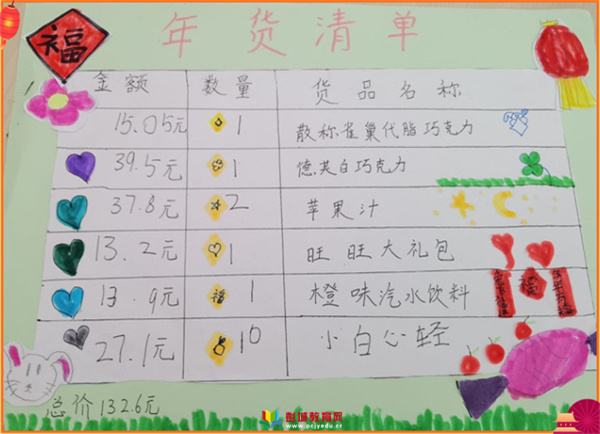 福
年货清单
金额 数量 货品名称
15.05元 1 散称雀巢代脂巧克力
39.5元 1 德芙白巧克力
37.8元 2 苹果汁
13.2元 1 旺旺大礼包
福
13.9元 福 1 橙味汽水饮料
27.1元 10 小白心轻
总价132.6元
彭城教育网
www.pcjyedu.cr